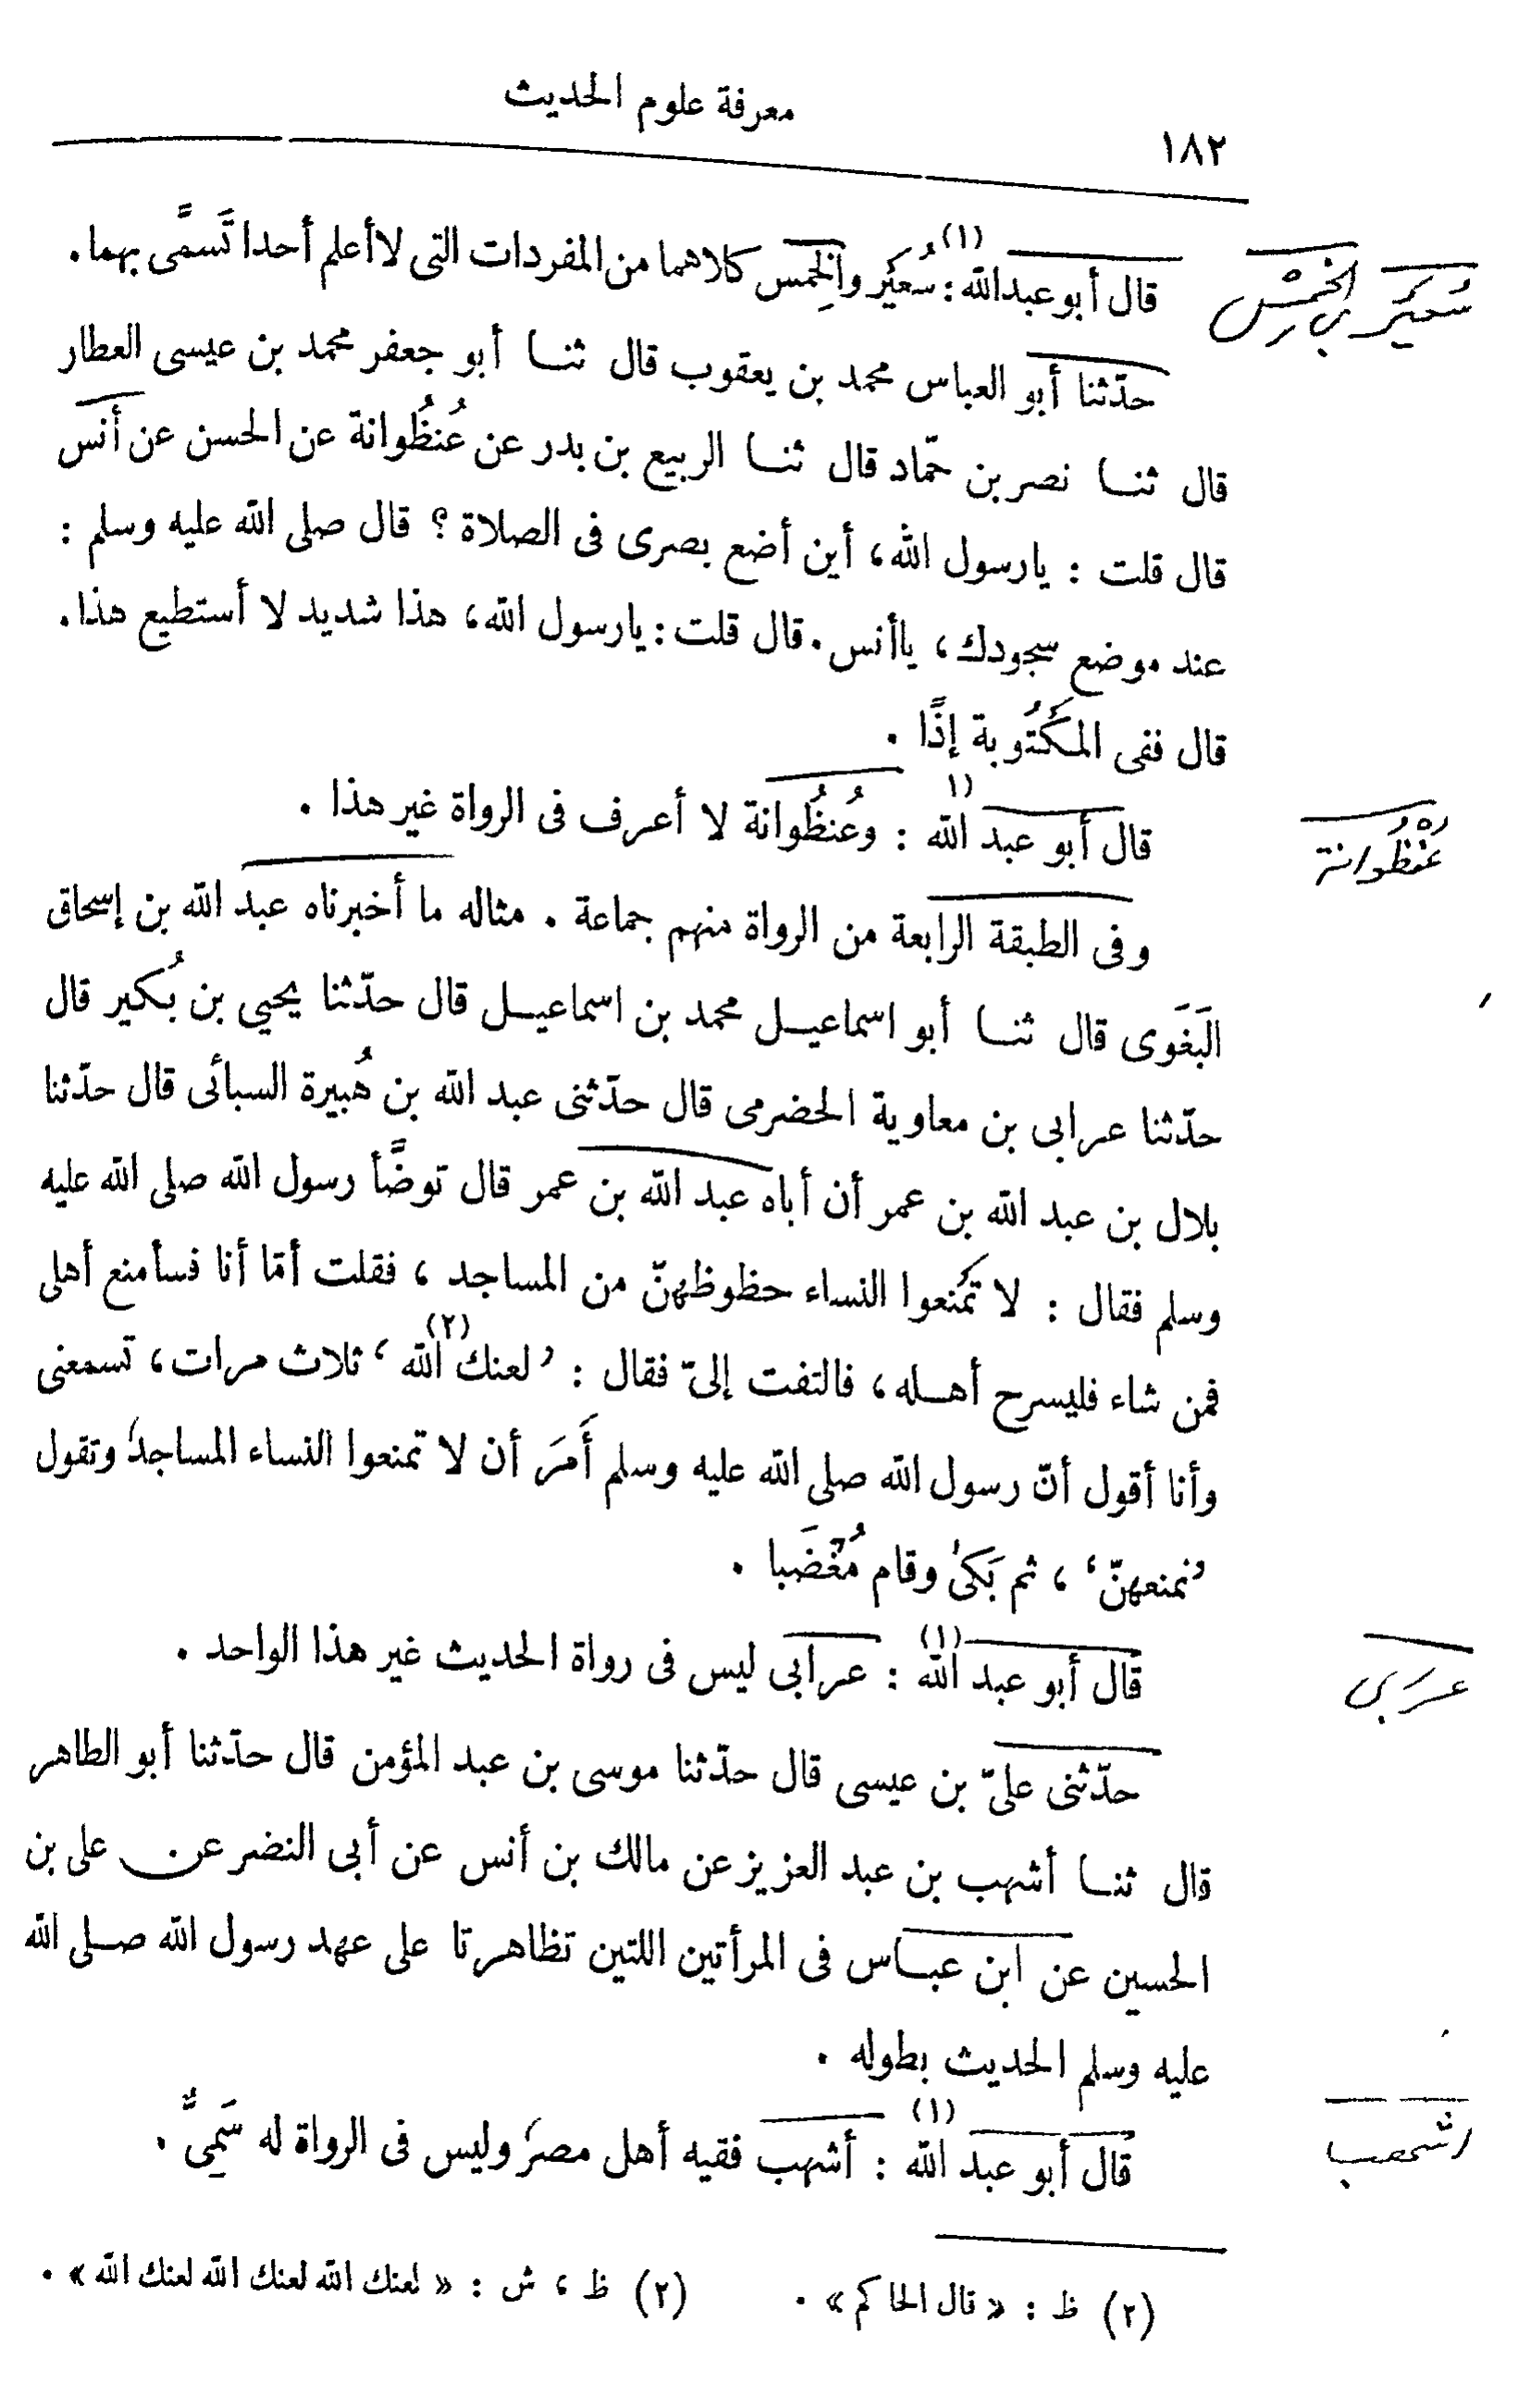 معرفة علوم الحديث
١٨٢
قال أبو عبدالله(١): سُعَيْر والخِمْس كلاهما من المفردات التى لا أعلم أحدا تَسمَّى بهما.
سُعَير بن الخِمْس
حدّثنا أبو العباس محمد بن يعقوب قال ثنا أبو جعفر محمد بن عيسى العطار
قال ثنا نصر بن حمّاد قال ثنا الربيع بن بدر عن عُنظُوانة عن الحسن عن أنس
قال قلت : يارسول الله، أين أضع بصرى فى الصلاة ؟ قال صلى الله عليه وسلم :
عند موضع سجودك، ياأنس. قال قلت: يارسول الله، هذا شديد لا أستطيع هذا.
قال ففى المَكْتُوبة إذًا .
قال أبو عبد الله(١ : وعُنظُوانة لا أعرف فى الرواة غير هذا .
عُنْظُوانة
وفى الطبقة الرابعة من الرواة منهم جماعة . مثاله ما أخبرناه عبد الله بن إسحاق
البَغَوى قال ثنا أبو اسماعيل محمد بن اسماعيل قال حدّثنا يحيي بن بُكير قال
حدّثنا عرابى بن معاوية الحضرمى قال حدّثنى عبد الله بن هُبيرة السبائى قال حدّثنا
بلال بن عبد الله بن عمر أن أباه عبد الله بن عمر قال توضَّأ رسول الله صلى الله عليه
وسلم فقال : لا تمنعوا النساء حظوظهنّ من المساجد ، فقلت أمّا أنا فسأمنع أهلى
فمن شاء فليسرح أهله، فالتفت إلىّ فقال : ’لعنك الله(٢)‘ ثلاث مرات، تسمعنى
وأنا أقول أنّ رسول الله صلى الله عليه وسلم أَمَرَ أن لا تمنعوا النساء المساجد وتقول
’نمنعهنّ‘ ، ثم بَكىٰ وقام مُغْضَبا .
قال أبو عبد الله(١) : عرابى ليس فى رواة الحديث غير هذا الواحد .
عرابي
حدّثنى علىّ بن عيسى قال حدّثنا موسى بن عبد المؤمن قال حدّثنا أبو الطاهر
قال ثنا أشهب بن عبد العزيز عن مالك بن أنس عن أبى النضر عن على بن
الحسين عن ابن عباس فى المرأتين اللتين تظاهرتا على عهد رسول الله صلى الله
عليه وسلم الحديث بطوله .
قال أبو عبد الله(١) : أشهب فقيه أهل مصر وليس فى الرواة له سَمِىٌّ .
اشهب
(٢) ظ : « قال الحاكم » . (٢) ظ ، ش : « لعنك الله لعنك الله لعنك الله » .